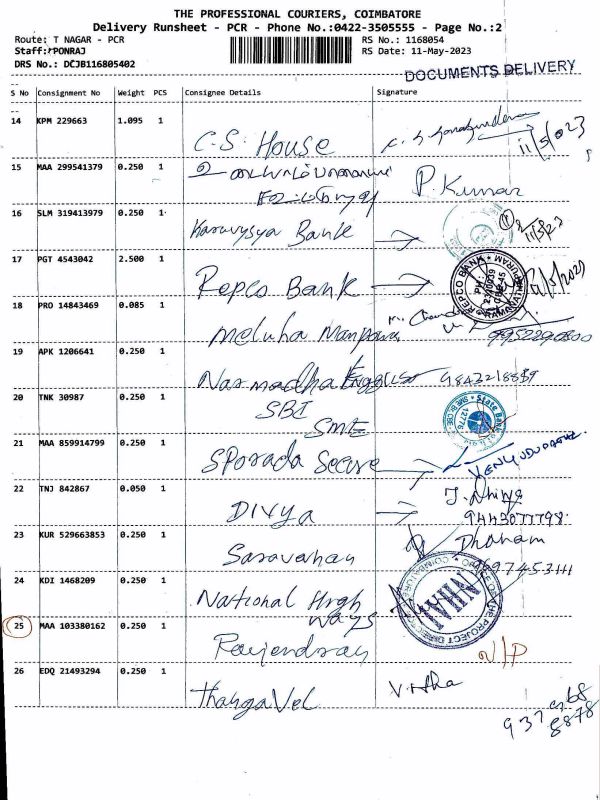 THE PROFESSIONAL COURIERS, COIMBATORE
Delivery Runsheet - PCR - Phone No.:0422-3505555 - Page No.:2
Route: T NAGAR - PCR RS No.: 1168054
Staff: PONRAJ RS Date: 11-May-2023
DRS No.: DCJB116805402
DOCUMENTS DELIVERY
S No Consignment No Weight PCS Consignee Details Signature
14 KPM 229663 1.095 1 C.S. House 11/5/2023
15 MAA 299541379 0.250 1 P. Kumar
16 SLM 319413979 0.250 1 Karurvysya Bank 11/5/23
17 PGT 4543042 2.500 1 Repco Bank REPCO BANK RAMANATHAPURAM
18 PRO 14843469 0.085 1 Meluha Manpower 9952290800
19 APK 1206641 0.250 1 Narmadha 9842218859
20 TNK 30987 0.250 1 SBI SME State Bank
21 MAA 859914799 0.250 1 SPorada Secure
22 TNJ 842867 0.050 1 DIVya 9443077798
23 KUR 529663853 0.250 1 Saravanan Dhanam 9697453111
24 KDI 1468209 0.250 1 National High ways NHAI OFFICE OF THE PROJECT DIRECTOR
25 MAA 103380162 0.250 1 Rajendran N/P
26 EDQ 21493294 0.250 1 ThangaVel